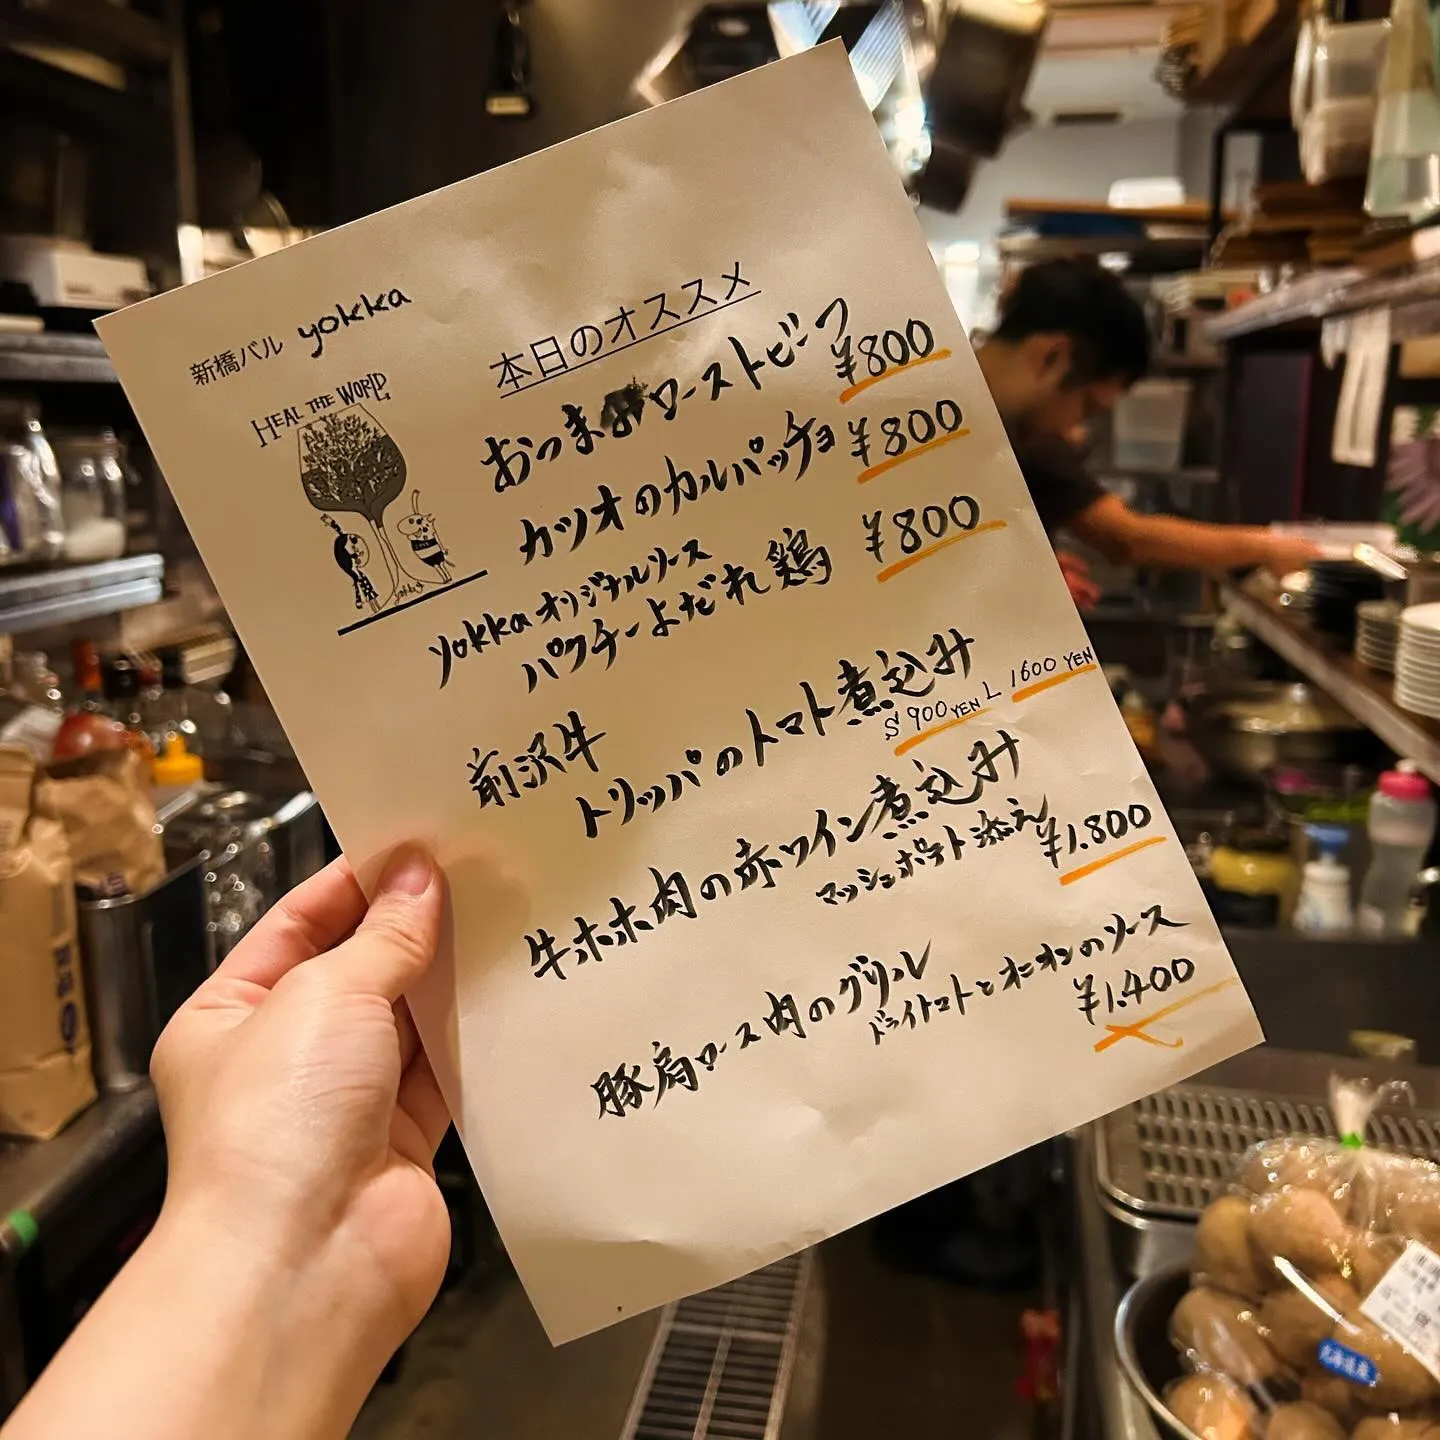 新橋バル yokka
HEAL THE WORLD
本日のオススメ
おつまみローストビーフ
¥800
カツオのカルパッチョ
¥800
yokkaオリジナルソース
パクチーよだれ鶏
¥800
前沢牛
トリッパのトマト煮込み
S 900 YEN L 1600 YEN
牛ホホ肉の赤ワイン煮込み
マッシュポテト添え
¥1.800
豚肩ロース肉のグリル
ドライトマトとオニオンのソース
¥1.400
北海道産